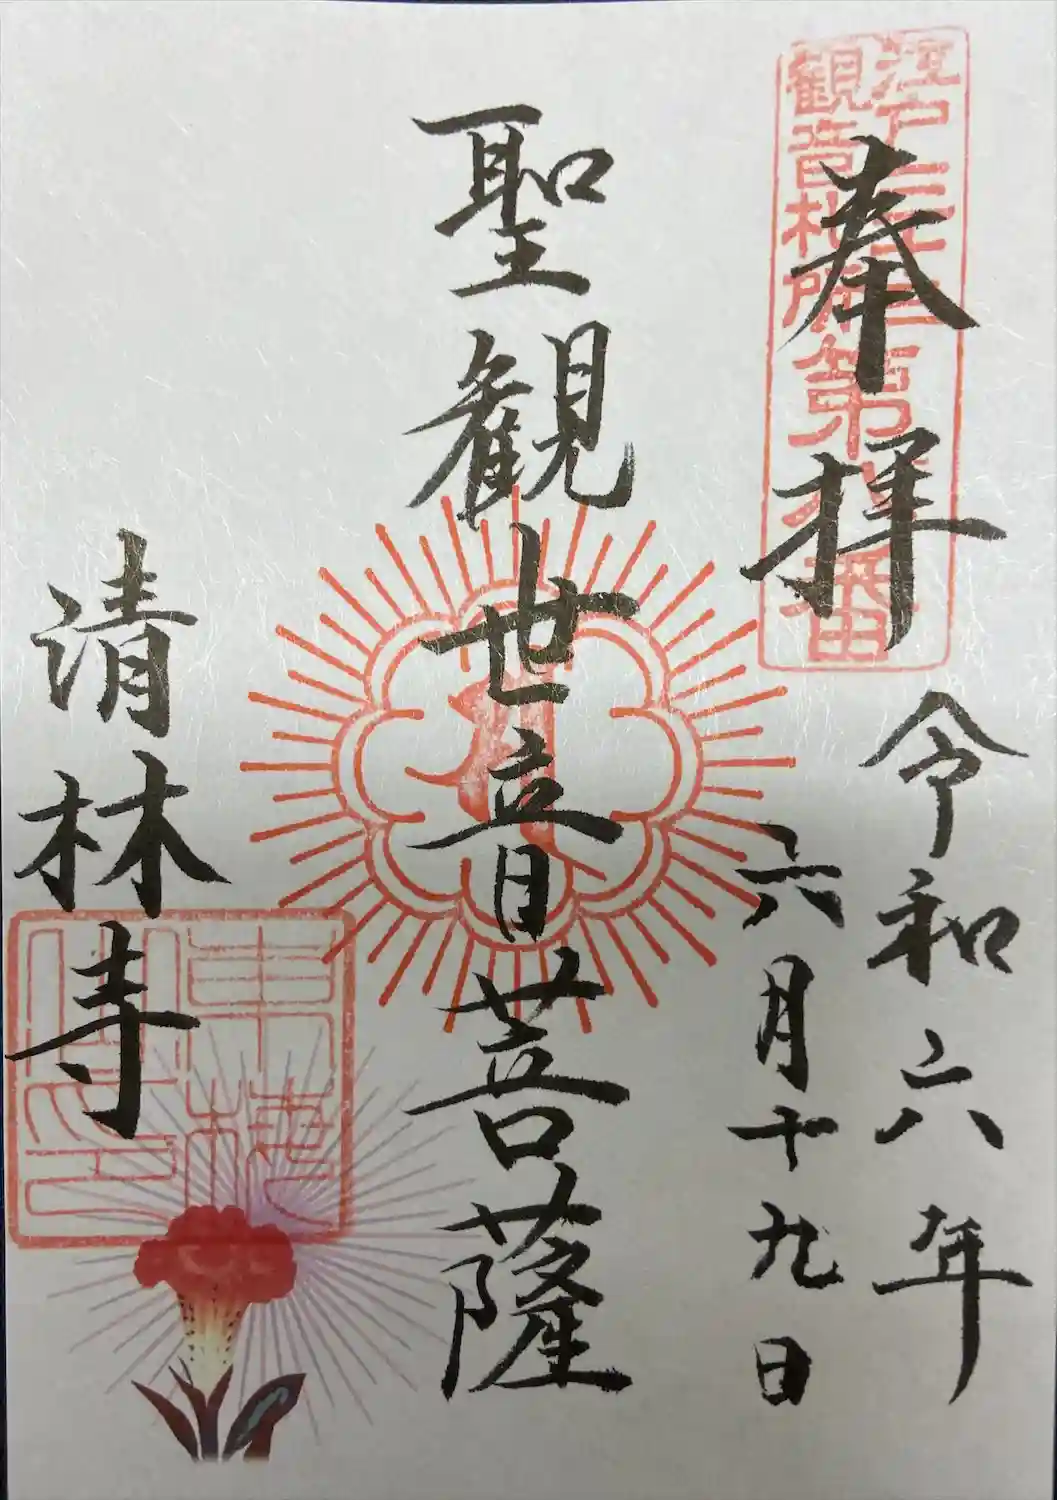 奉拝
江戸三十三
観音札所
第
番
令和六年
六月十九日
聖観世音菩薩
清林寺